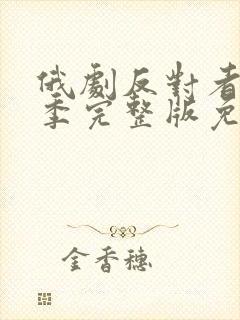 俄劇反對者
季完整版免
金香穗